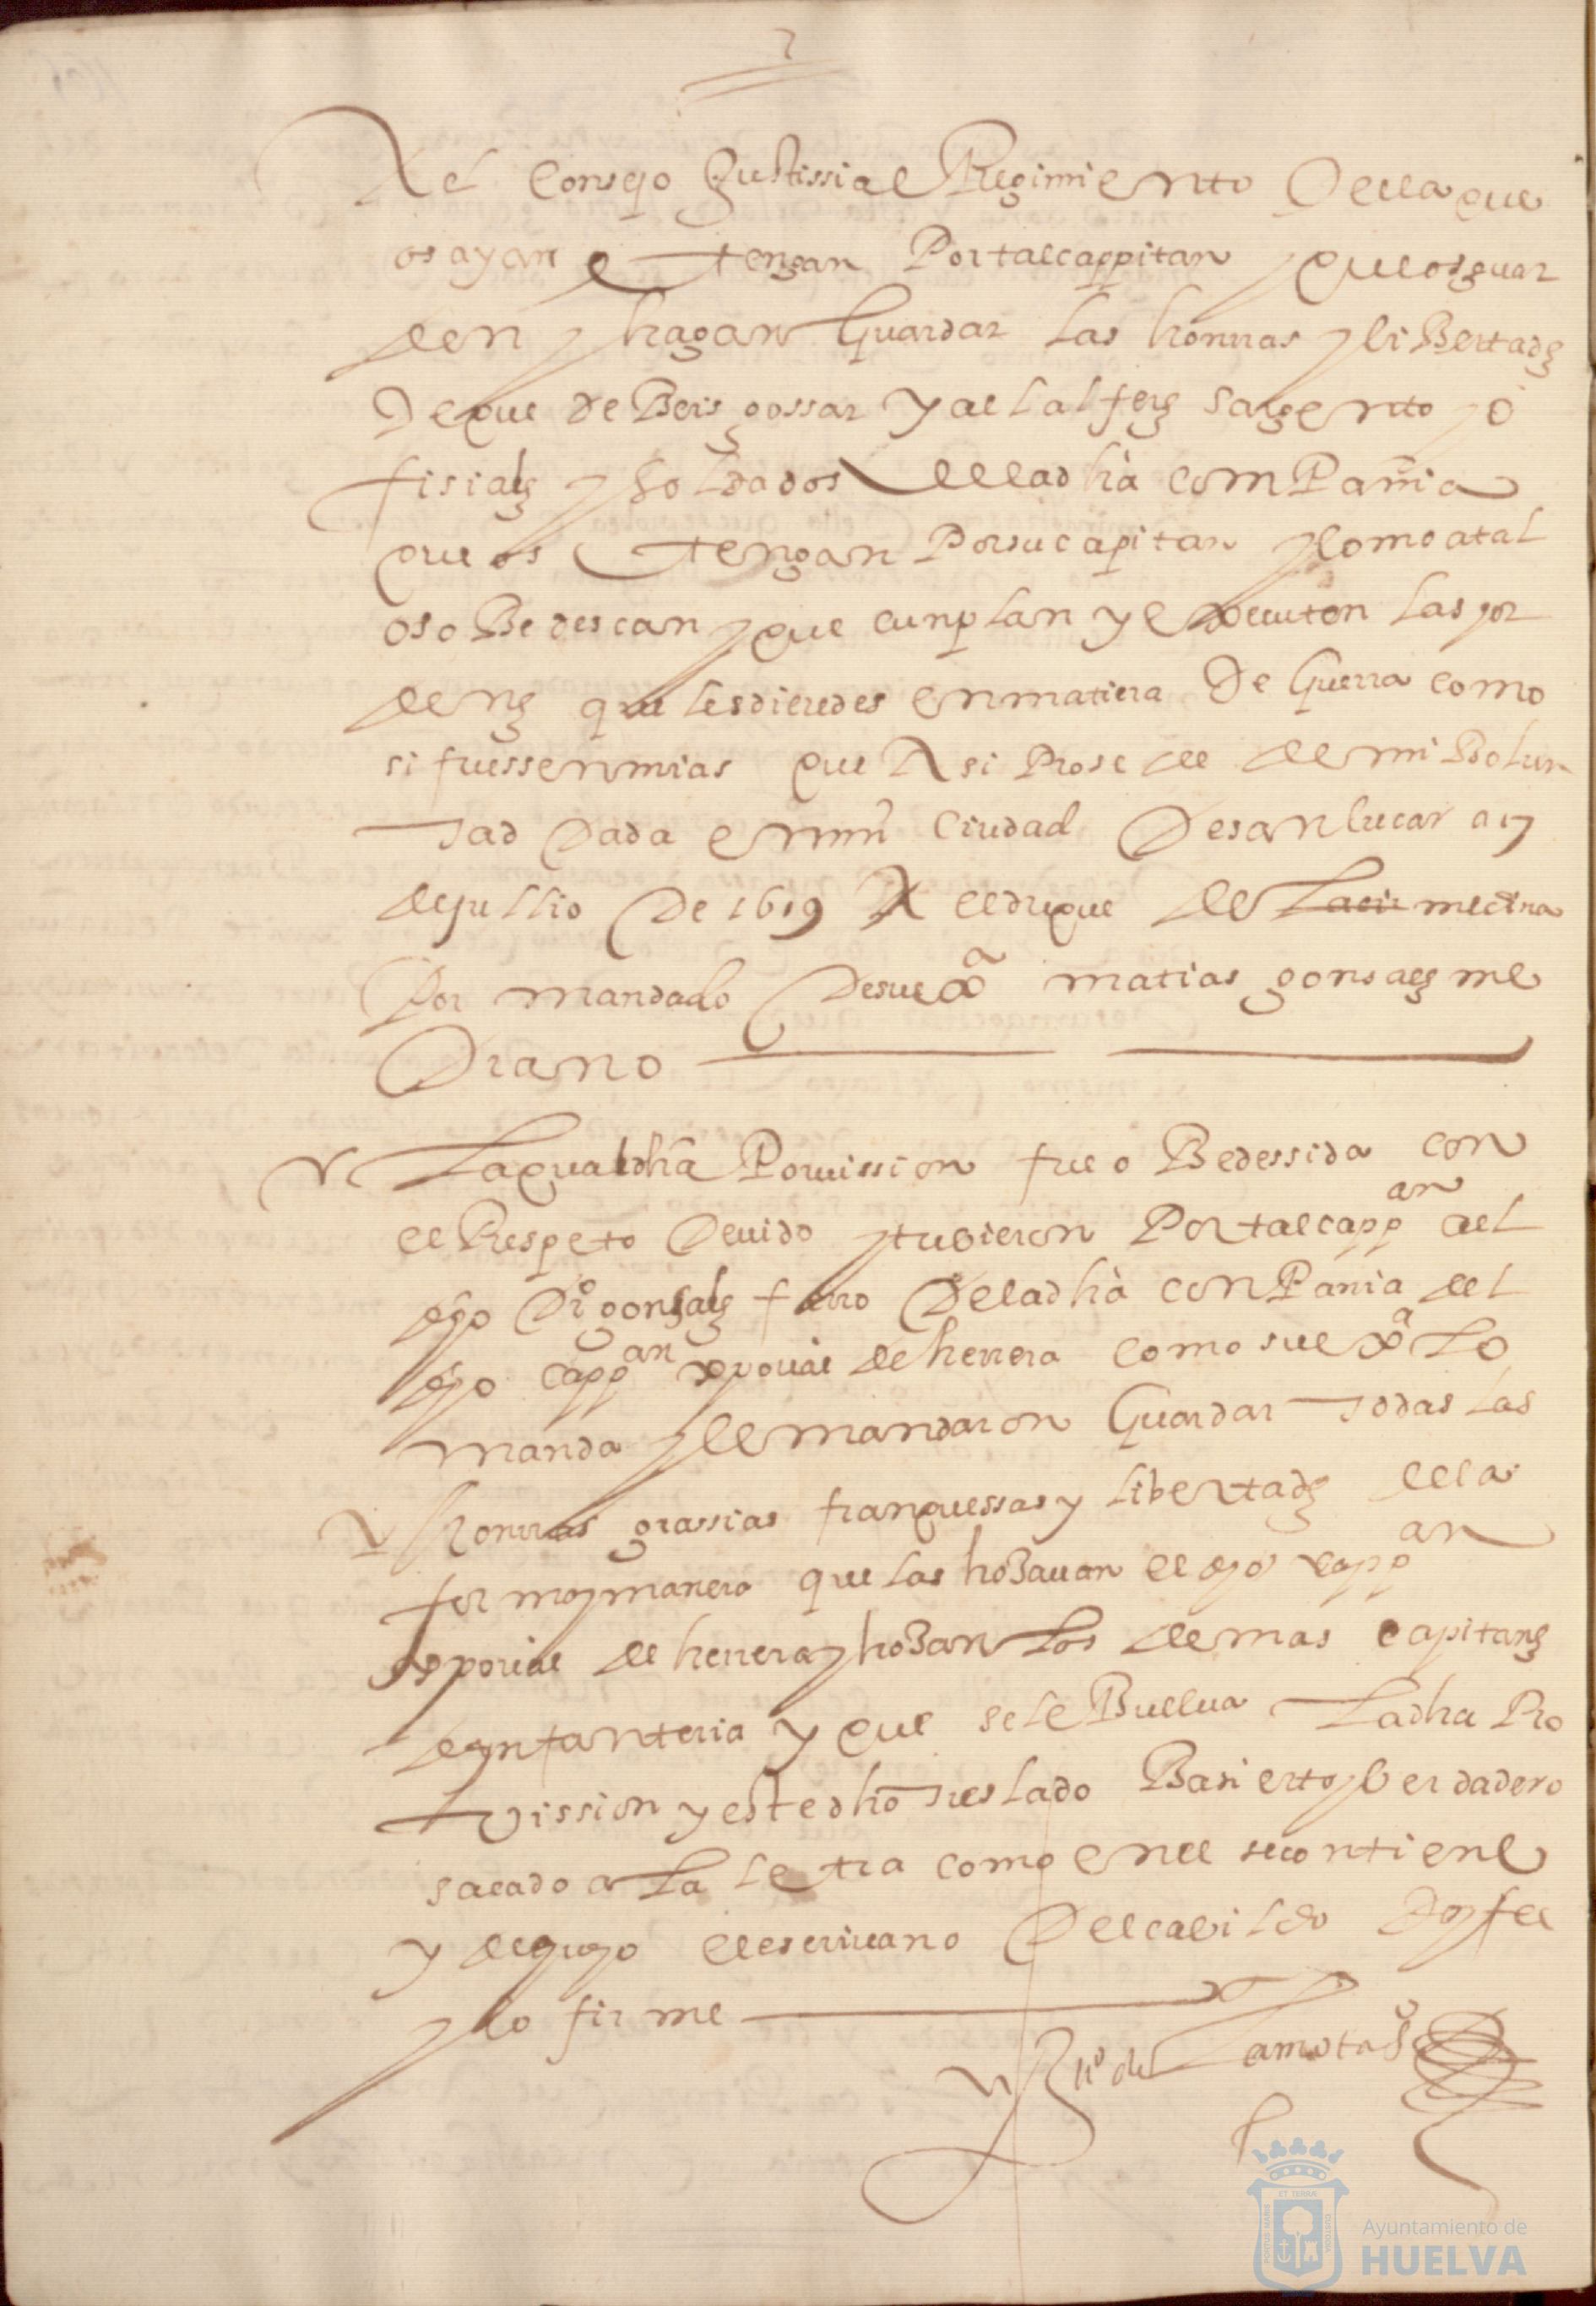 Al Consejo Justissia e Regimiento della que
os ayan e tengan Por tal cappitan y que os guar
den y hagan Guardar las honrras y liBertads
de que deBeis gossar y a el alfers sargento y o
fisials y soldados de la dha comPañia
que os tengan Por su capitan y como a tal
os oBedescan y que cunplan y executen las hor
dens que les dieredes en matiera de Guerra como
si fuessen mias que Asi Prosede de mi Bolun
tad Dada en mi Ciudad De sanlucar a 17
de jullio De 1619 el duque de medina
Por mandado De su exa matias gonsales me
Drano
La qual dha Provission fue oBedessida con
el Respeto Devido y tuvieron Por tal cappan a el
dho Do gonsals farro De la dha conPañia del
dho cappan de herrera como su exa lo
manda y le mandaron Guardar todas las
honrras grassias franquessas y libertads de la
forma y manera que las goSavan el dho cappan
de herrera y goSan los demas capitans
de ynfanteria y que se le Buelva La dha Pro
vission y este dho treslado Ba sierto y berdadero
sacado a La Letra como en el se contiene
y de que yo el escrivano Del cavildo doy fee
y lo firme
de Lamota
Ayuntamiento de
HUELVA